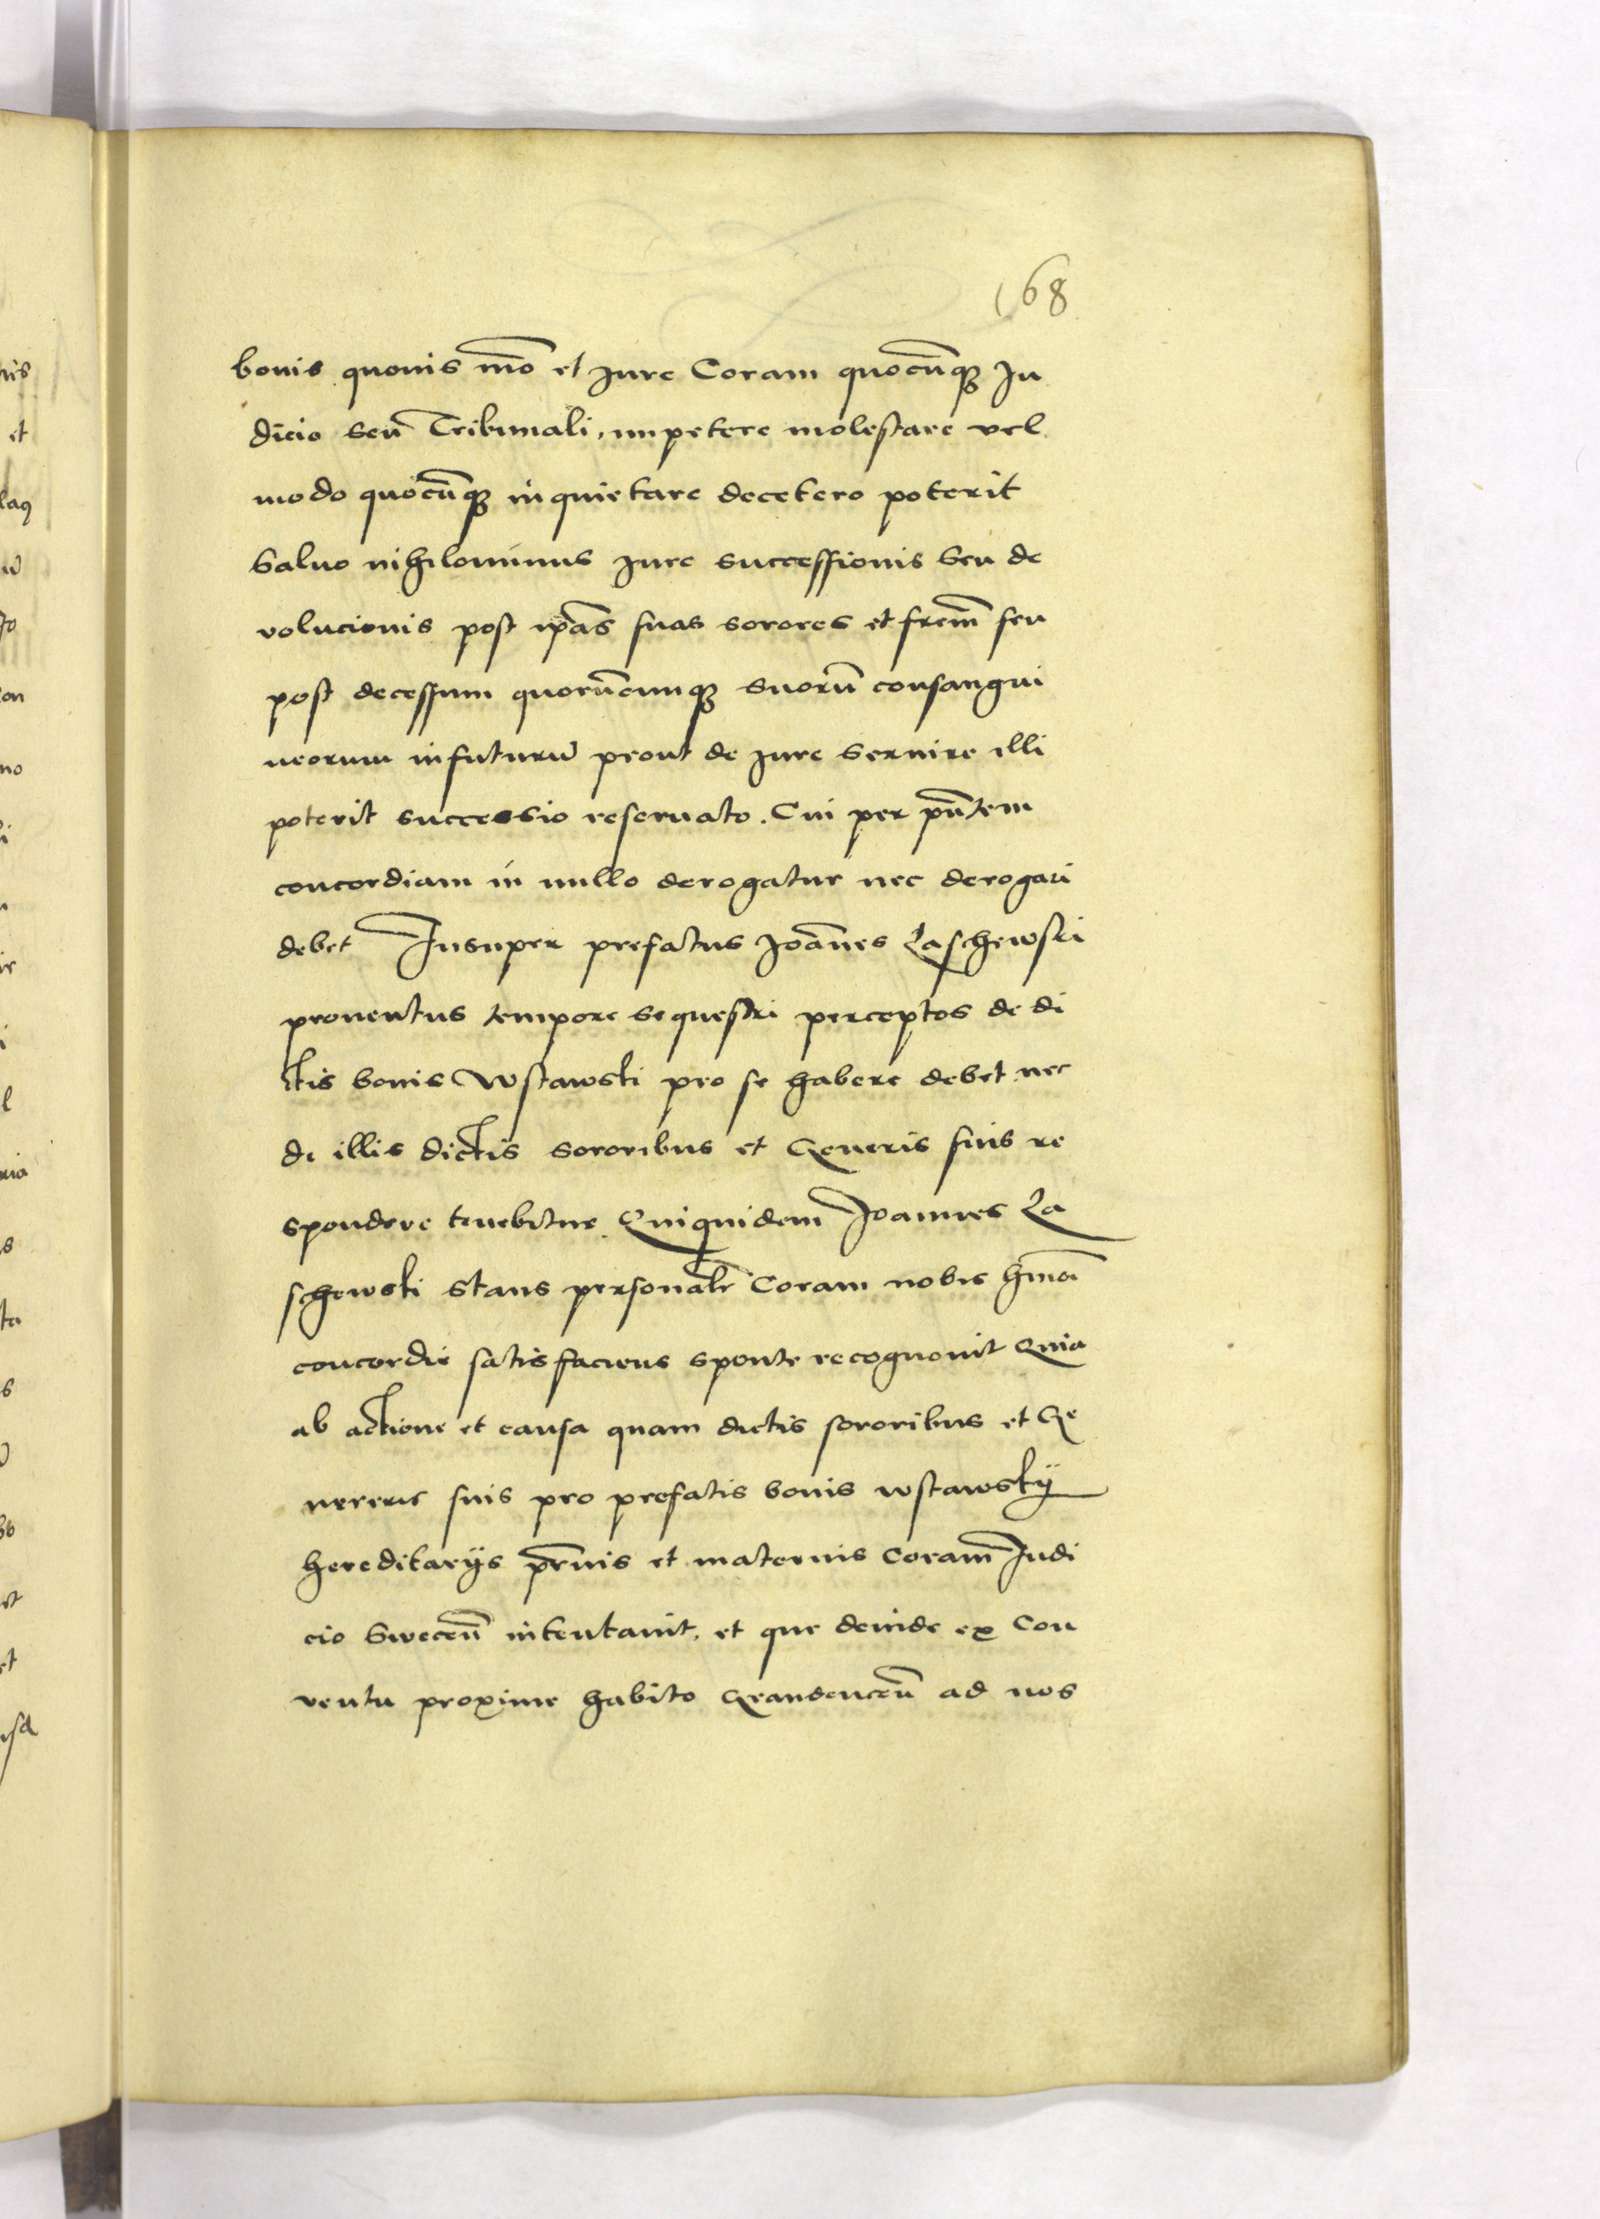 168
bonis quouis mō et Jure Coram quocūqꝫ Ju
dicio seū Tribunali, impetere molestare vel
modo quocūqꝫ inquietare decetero poterit
Saluo nihilominus Jure successionis Seu de
volucionis post ip̄as suas sorores et frem̄ seu
post decessum quorūcunqꝫ suorū consangui
neorum infuturū prout de Jure Seruire illi
poterit successio reseruato. Cui per pn̄tem
concordiam in nullo derogatur nec derogari
debet Insuper prefatus Joānes Laschewski
prouentus tempore sequestri perceptos de di
ctis bonis Wstawski pro se habere debet nec
de illis dictis sororibus et Generis suis re
spondere tenebitur Quiquidem Joannes La
schewski Stans personalr̄ Coram nobis hm̄oi
concordie satisfaciens sponte recognouit Quia
ab actione et causa quam dictis sororibus et Ge
nereris suis pro prefatis bonis wstawskÿ
hereditarÿs pr̄nis et maternis coram Judi
cio Sweceū intentauit, et que deinde ex Con
ventu proxime habito Graudenceū ad nos